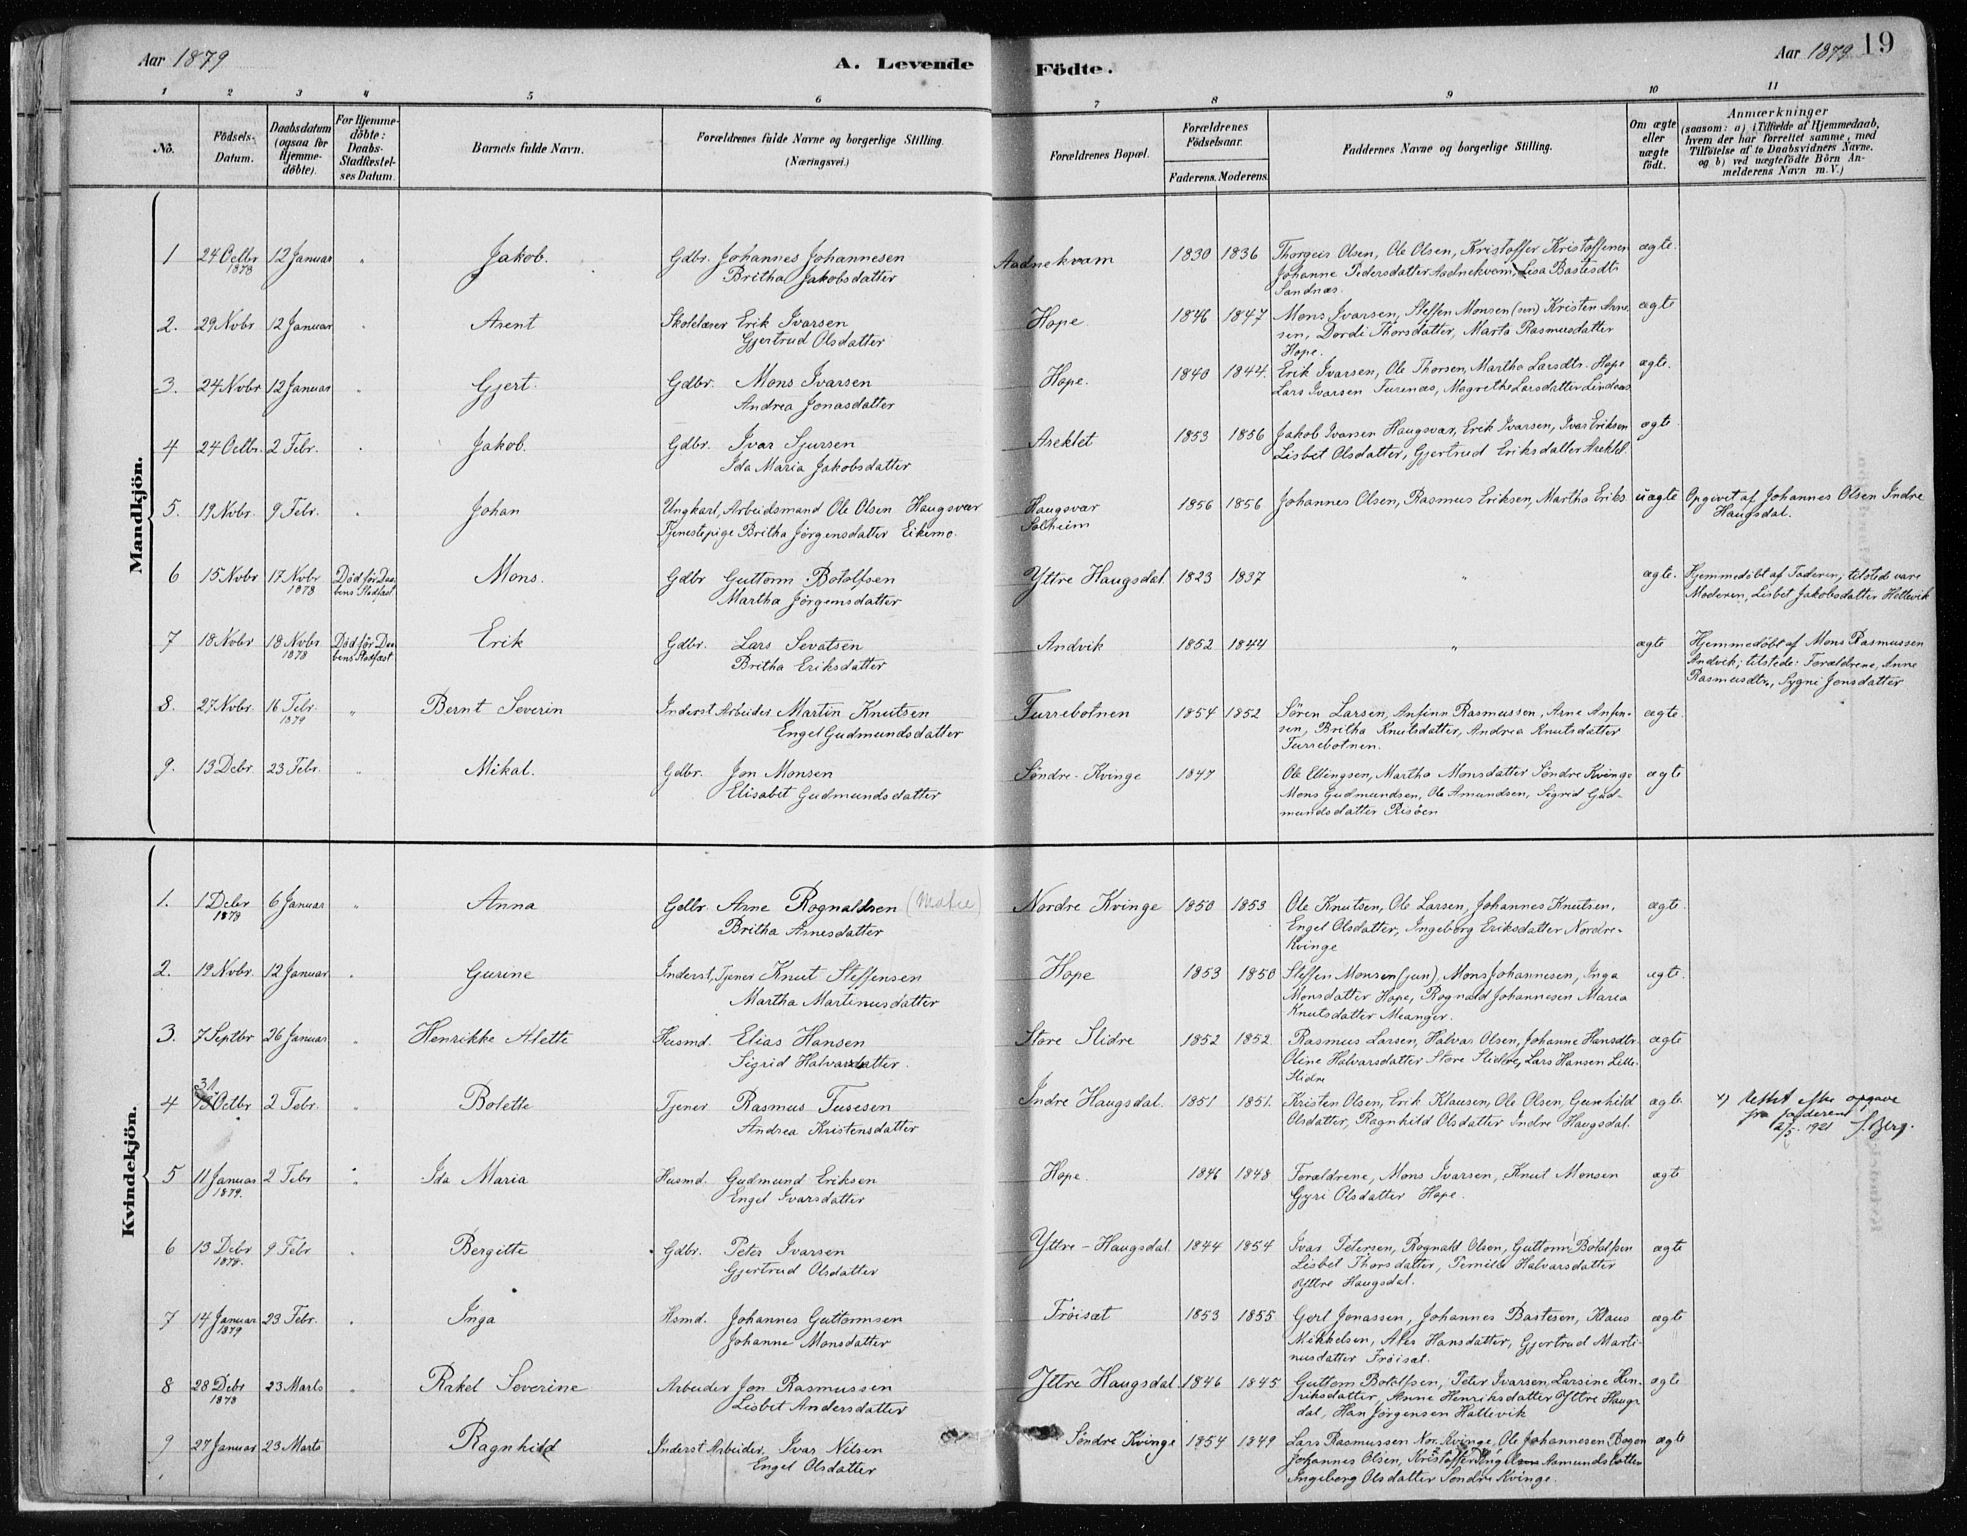 Aar 1879
A. Levende Födte.
Aar 1879 19
1 2 3 4 5 6 7 8 9 10 11
No. Födsels-Datum. Daabsdatum (ogsaa for Hjemmedöbte). For Hjemmedöbte: Daabs-Stadfestelses Datum. Barnets fulde Navn. Forældrenes fulde Navne og borgerlige Stilling. (Næringsvei.) Forældrenes Bopæl. Forældrenes Födselsaar. Faderens. Moderens. Faddernes Navne og borgerlige Stilling. Om ægte eller uægte födt. Anmærkninger (saasom: a) i Tilfælde af Hjemmedaab, hvem der har forrettet samme, med Tilföielse af to Daabsvidners Navne, og b) ved uægtefödte Börn Anmelderens Navn m. V.)
Mandkjön.
1 24 Octbr 12 Januar " Jakob. Gdbr. Johannes Johannesen Aadnekvam 1830 1836 Thorgeis Olsen, Ole Olsen, Kristoffer Kristoffersen ægte.
1878 Britha Jakobsdatter Johanne Pedersdatter Aadnekvam, Lisa Bastesdtr
Sandnæs.
2. 29 Nvbr 12 Januar " Arent Skolelærer Erik Ivarsen Hope 1846 1847 Mons Ivarsen, Steffen Monsen (sen) Kristen Arne- ægte
Gjertrud Olsdatter sen, Dordi Thorsdatter, Marta Rasmusdatter
Hope.
3. 24 Nvbr 12 Januar " Gjert. Gdbr. Mons Ivarsen Hope. 1840 1844 Erik Ivarsen, Ole Thorsen, Martha Larsdtr. Hope ægte.
Andrea Jonasdatter Lars Ivarsen Furenæs, Magrethe Larsdatter Lindaas
4 24 Octbr. 2 Febr. " Jakob. Gdbr. Ivar Sjursen Areklet 1853 1856 Jakob Ivarsen Haugsvær, Erik Ivarsen, Ivar Eriksen ægte
Ida Maria Jakobsdatter Lisbet Olsdatter, Gjertrud Eriksdatter Areklet.
5. 19 Nvbr. 9 Febr. " Johan Ungkarl, Arbeidsmand Ole Olsen Haugsvær Haugsvær 1856 1856 Johannes Olsen, Rasmus Eriksen, Martha Eriks uægte Opgivet af Johannes Olsen Indre
Tjenestepige Britha Jörgensdatter Eikemo. Solheim Haugsdal.
6 15 Nvbr 17 Nvbr Död för Daa- Mons. Gdbr Guttorm Botolfsen Yttre Haugsdal. 1823 1837 " ægte. Hjemmedöbt af Faderen; tilstede vare
1878 bens Stadfæst Martha Jörgensdatter Moderen, Lisbet Jakobsdatter Hellevik
7 18 Nvbr 18 Nvbr Död för Daa- Erik Gdbr. Lars Sevatsen Andvik 1852 1844 " ægte Hjemmedöbt af Mons Rasmussen
1878 bens Stadfæst Britha Eriksdatter Andvik; tilstede: Forældrene, Anne
Rasmusdtr, Sygni Jonsdatter
8. 27 Nvbr. 16 Febr. " Bernt Severin Inderst Arbeider Martin Knutsen Furrebotnen 1854 1852 Sören Larsen, Anfinn Rasmussen, Arne Anfin- ægte.
1879 Engel Gudmundsdatter sen, Britha Knutsdatter, Andrea Knutsdatter
Furrebotnen.
9. 13 Debr. 23 Febr. " Mikal. Gdbr. Jon Monsen Söndre-Kvinge 1847 Ole Ellingsen, Martha Monsdatter Söndre Kvinge ægte
Elisabet Gudmundsdatter Mons Gudmundsen, Ole Amundsen, Sigrid Gud-
mundsdatter Risöen
Kvindekjön.
1. 1 Debr 6 Januar " Anna Gdbr. Arne Rognaldsen Nordre Kvinge 1850 1853 Ole Knutsen, Ole Larsen, Johannes Knutsen, ægte.
1878 Britha Arnesdatter Engel Olsdatter, Ingeborg Eriksdatter Nordre-
Kvinge
2. 19 Nvbr. 12 Januar " Gurine Inderst, Tjener Knut Steffensen Hope 1853 1850 Steffen Monsen (jun), Mons Johannesen, Inga ægte.
Martha Martinusdatter Monsdatter Hope, Rognald Johannesen Maria
Knutsdatter Meanger.
3. 7 Septbr 26 Januar " Henrikke Alette Husmd. Elias Hansen Store Slidre 1852 1852 Rasmus Larsen, Halvar Olsen, Johanne Hansdtr. ægte
Sigrid Halvarsdatter. Oline Halvarsdatter Store Slidre, Lars Hansen Lille
Slidre
31
4 Octbr 2 Febr. " Bolette Tjener Rasmus Fusesen Indre Haugsdal. 1851 1851. Kristen Olsen, Erik Klausen, Ole Olsen, Gunhild ægte. x) rettet efter opgave
Andrea Kristensdatter Olsdatter, Ragnhild Olsdatter Indre Haugsdal. fra faderen
2/5 1921 J. Berg.
5 11 Januar 2 Febr " Ida Maria Husmd. Gudmund Eriksen Hope. 1846 1848 Forældrene, Mons Ivarsen, Knut Monsen ægte
1879. Engel Ivarsdatter Gyri Olsdatter Hope.
6 13 Debr 9 Febr " Bergitte Gdbr. Peter Ivarsen Yttre-Haugsdal 1844 1854 Ivar Petersen, Rognald Olsen, Guttorm Botolfsen ægte
1878. Gjertrud Olsdatter Lisbet Thorsdatter, Pernille Halvarsdatter
Yttre Haugsdal.
7 14 Januar 23 Febr. " Inga Hsmd. Johannes Guttormsen Fröisæt 1853 1855 Gjert Jonassen, Johannes Bastesen, Klaus ægte
1879 Johanne Monsdatter Mikkelsen, Ales Hansdatter, Gjertrud Marti-
nusdatter Fröisæt.
8 28 Debr 23 Marts " Rakel Severine Arbeider Jon Rasmussen Yttre Haugsdal 1846 1845 Guttom Botolfsen, Peter Ivarsen, Larsine Hen- ægte
1878 Lisbet Andersdatter riksdatter, Anne Henriksdatter Yttre Haugs
dal, Han Jörgensen Hallevik
9 27 Januar 23 Marts Ragnhild Inderst Arbeider, Ivar Nilsen Söndre Kvinge 1854 1849 Lars Rasmussen Nor. Kvinge, Ole Johannesen Bogen ægte
Engel Olsdatter Johannes Olsen, Kristoffer Asmundsbotten
Ingeborg Olsdatter Söndre Kvinge.